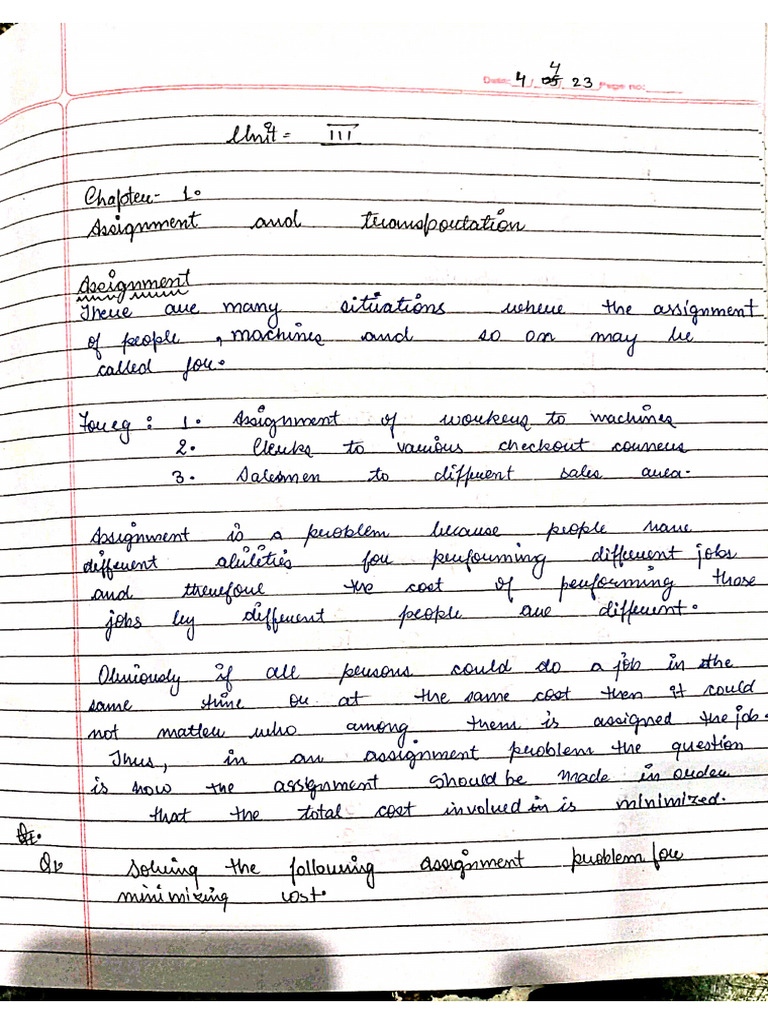 4
Date: 4 05 23 Page no:
Unit = III
Chapter- 1.
Assignment and transportation
Assignment
There are many situations where the assignment
of people, machines and so on may be
called for.
For eg: 1. Assignment of workers to machines
2. Clerks to various checkout couners
3. Salesmen to different sales area.
Assignment is a problem because people have
different abilities for performing different jobs
and therefore the cost of performing those
jobs by different people are different.
Obviously if all persons could do a job in the
same time or at the same cost then it could
not matter who among them is assigned the job.
Thus, in an assignment problem the question
is how the assignment should be made in order
that the total cost involved in is minimized.
Q1.
Q1. Solving the following assignment problem for
minimizing cost.